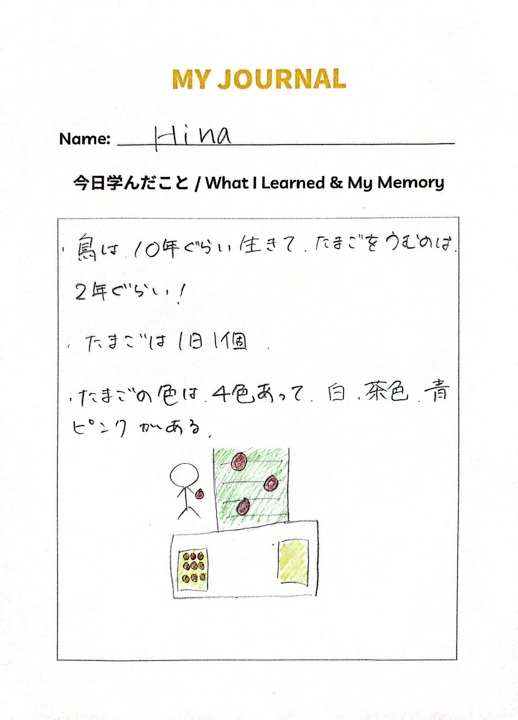 MY JOURNAL
Name: Hina
今日学んだこと / What I Learned & My Memory
・鳥は、10年ぐらい生きて、たまごをうむのは、
2年ぐらい!
・たまごは1日1個、
・たまごの色は、4色あって、白、茶色、青
ピンクがある。